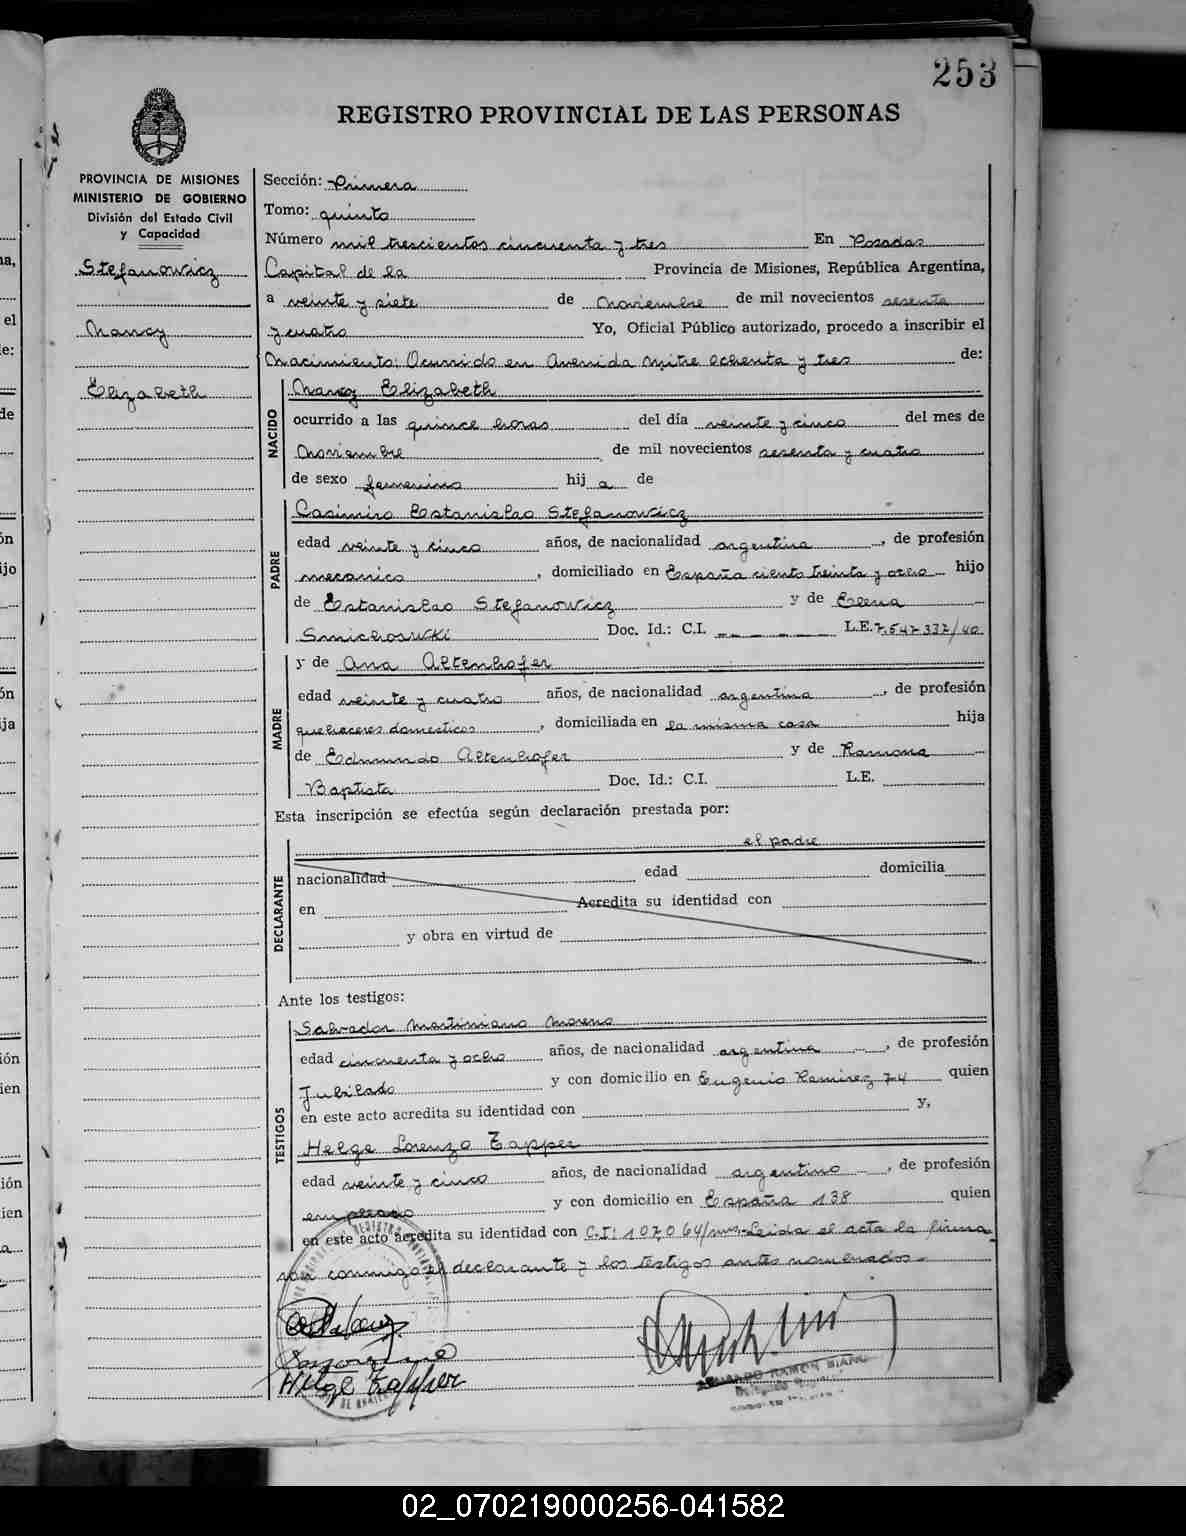 253
REGISTRO PROVINCIAL DE LAS PERSONAS
PROVINCIA DE MISIONES
MINISTERIO DE GOBIERNO
División del Estado Civil
y Capacidad
Stefanowicz
Nancy
Elizabeth
Sección: Primera
Tomo: quinto
Número mil trescientos cincuenta y tres En Posadas
Capital de la Provincia de Misiones, República Argentina,
a veinte y siete de Noviembre de mil novecientos sesenta
y cuatro Yo, Oficial Público autorizado, procedo a inscribir el
Nacimiento: Ocurrido en Avenida Mitre ochenta y tres de:
NACIDO
Nancy Elizabeth
ocurrido a las quince horas del día veinte y cinco del mes de
Noviembre de mil novecientos sesenta y cuatro
de sexo femenino hij a de
PADRE
Casimiro Estanislao Stefanowicz
edad veinte y cinco años, de nacionalidad argentina, de profesión
mecanico, domiciliado en España ciento treinta y ocho hijo
de Estanislao Stefanowicz y de Elena
Smichoswki Doc. Id.: C.I. L.E. 7.547.337/40
MADRE
y de Ana Altenhofer
edad veinte y cuatro años, de nacionalidad argentina, de profesión
quehaceres domesticos, domiciliada en la misma casa hija
de Edmundo Altenhofer y de Ramona
Baptista Doc. Id.: C.I. L.E.
Esta inscripción se efectúa según declaración prestada por:
DECLARANTE
el padre
nacionalidad edad domicilia
en Acredita su identidad con
y obra en virtud de
Ante los testigos:
TESTIGOS
Salvador Martiniano Moreno
edad cincuenta y ocho años, de nacionalidad argentina, de profesión
Jubilado y con domicilio en Eugenio Ramirez 74 quien
en este acto acredita su identidad con y,
Helge Lorenzo Tapper
edad veinte y cinco años, de nacionalidad argentino, de profesión
empleado y con domicilio en España 138 quien
en este acto acredita su identidad con C.I: 107.064/mns.-Leida el acta la firma
ron conmigo el declarante y los testigos antes nombrados.-
Helge Tapper
RAMON
02_070219000256-041582